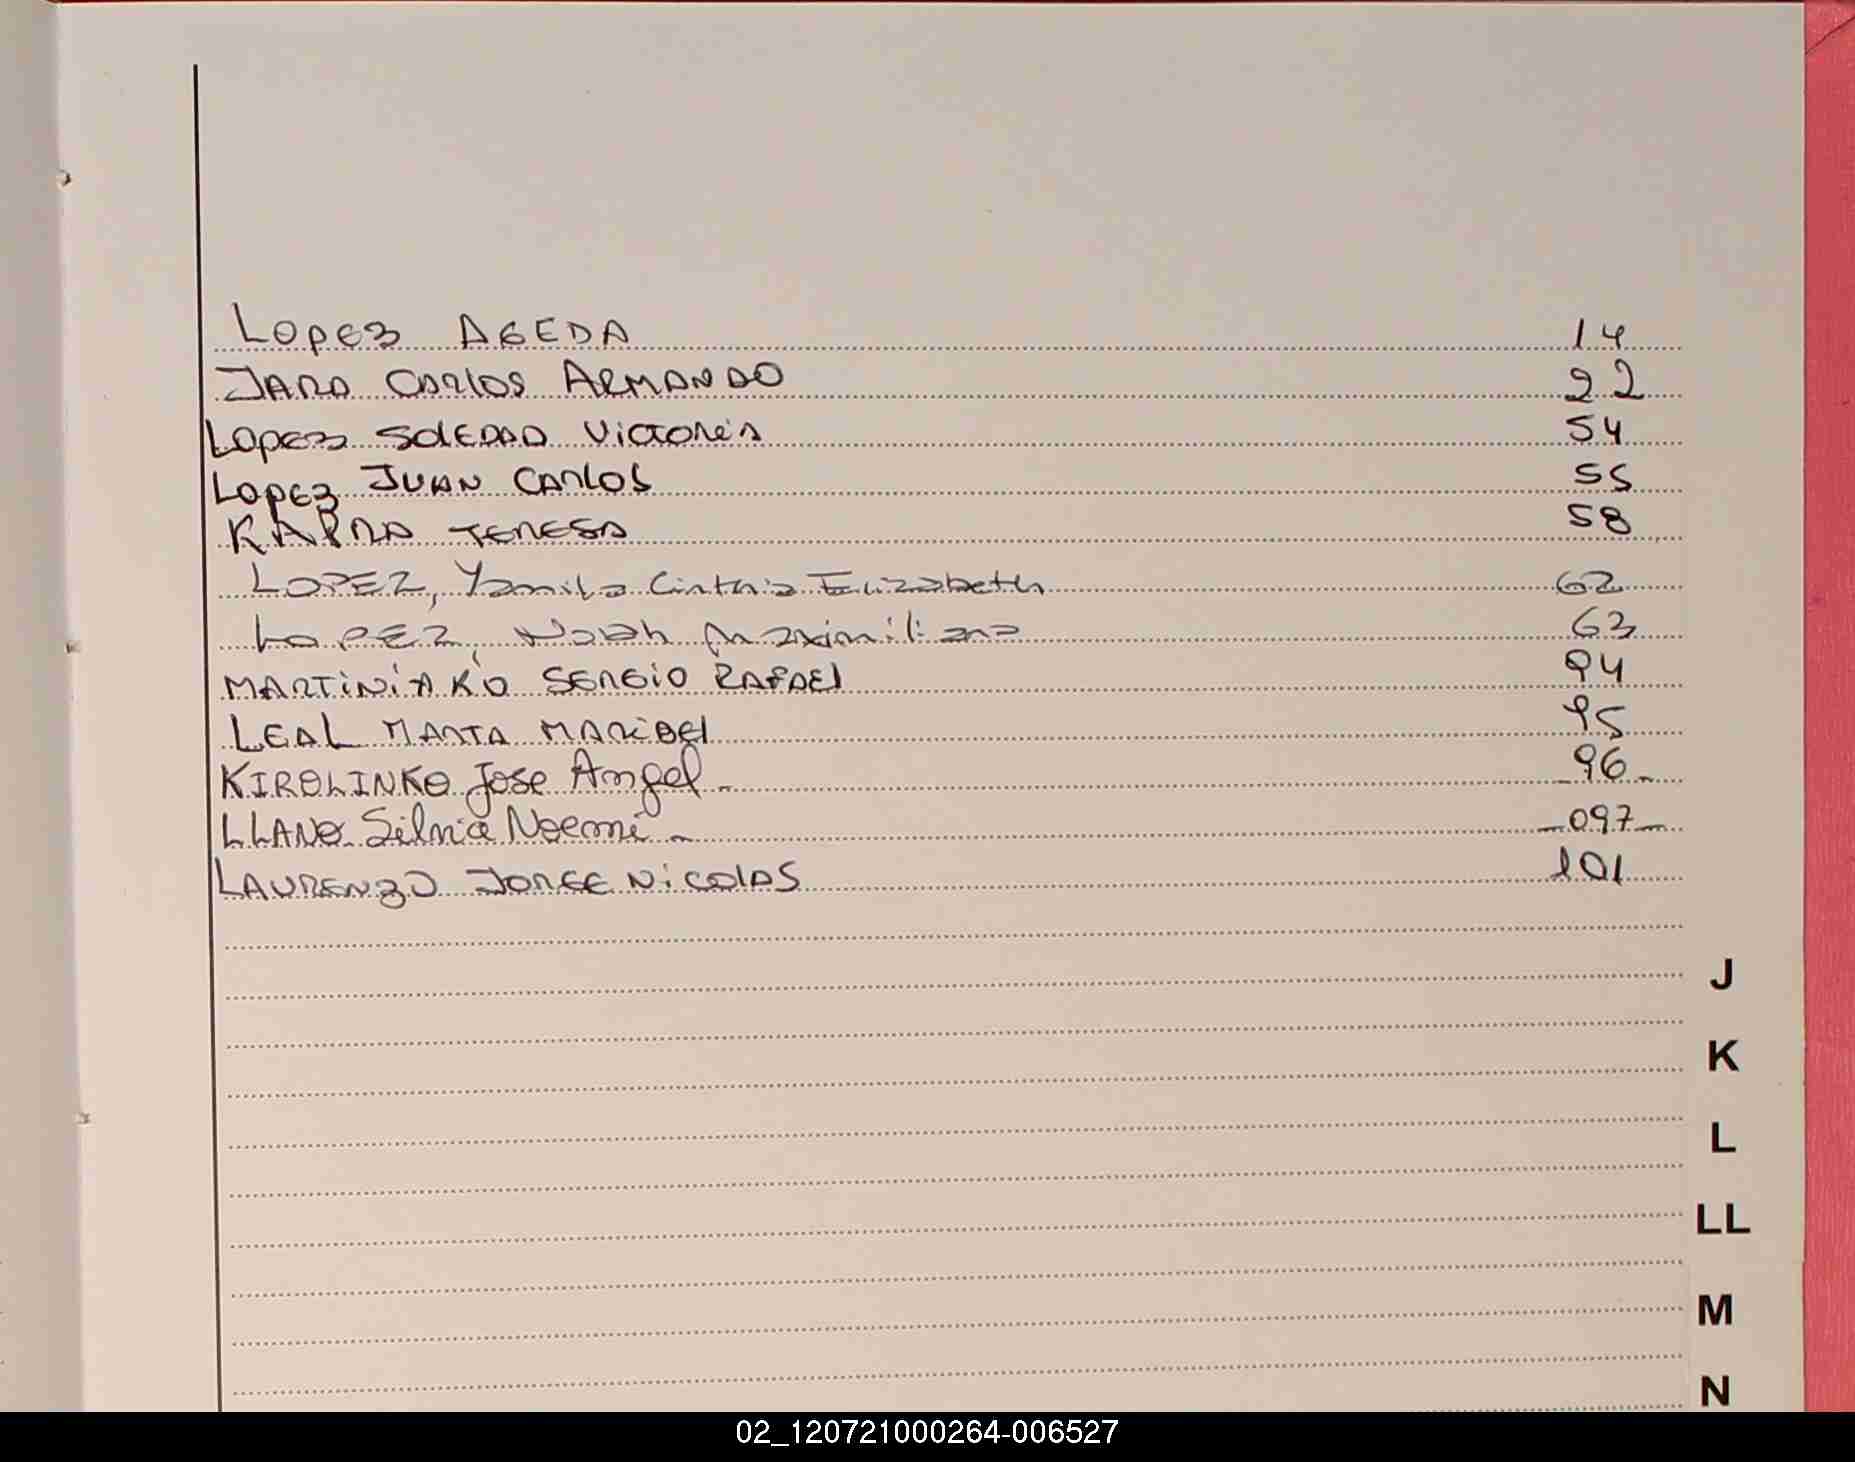 Lopez AGEDA 14
JARA CARLOS ARMANDO 22
Lopez SOLEDAD Victoria 54
Lopez JUAN CARLOS 55
KAPRA TERESA 58
LOPEZ, Yamila Cinthia Elizabeth 62
LOPEZ, Noah Maximiliano 63
MARTINIAKO SERGIO RAFAEL 94
LEAL MARTA MARIBEL 95
KIROLINKO Jose Angel - 96 -
LLANO Silvia Noemi - - 097 -
LAURENZO JORGE NICOLAS 101
J
K
L
LL
M
N
02_120721000264-006527